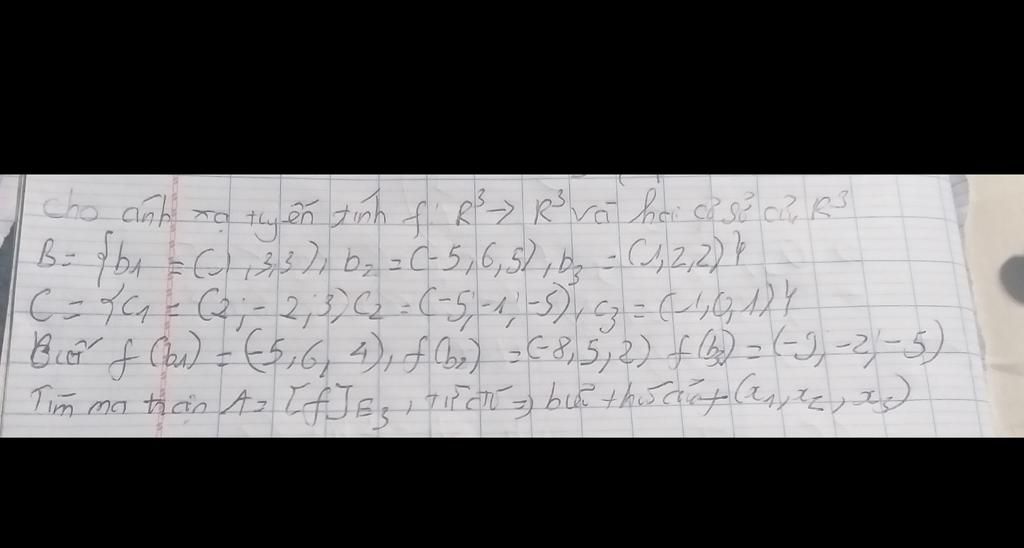 Cho ánh xạ tuyến tính f: R³ → R³ và hai cơ sở của R³
B = {b₁ = (1, 3, 3), b₂ = (-5, 6, 5), b₃ = (1, 2, 2)}
C = {C₁ = (2; -2; 3) C₂ = (-5; -1; -5), c₃ = (-1, 0, 1)}
Biết f(b₁) = (-5, 6, 4), f(b₂) = (-8, 5, 2) f(b₃) = (-9, -2, -5)
Tìm ma trận A = [f]E₃, từ đó ⇒ biểu thức của f (x₁, x₂, x₃)